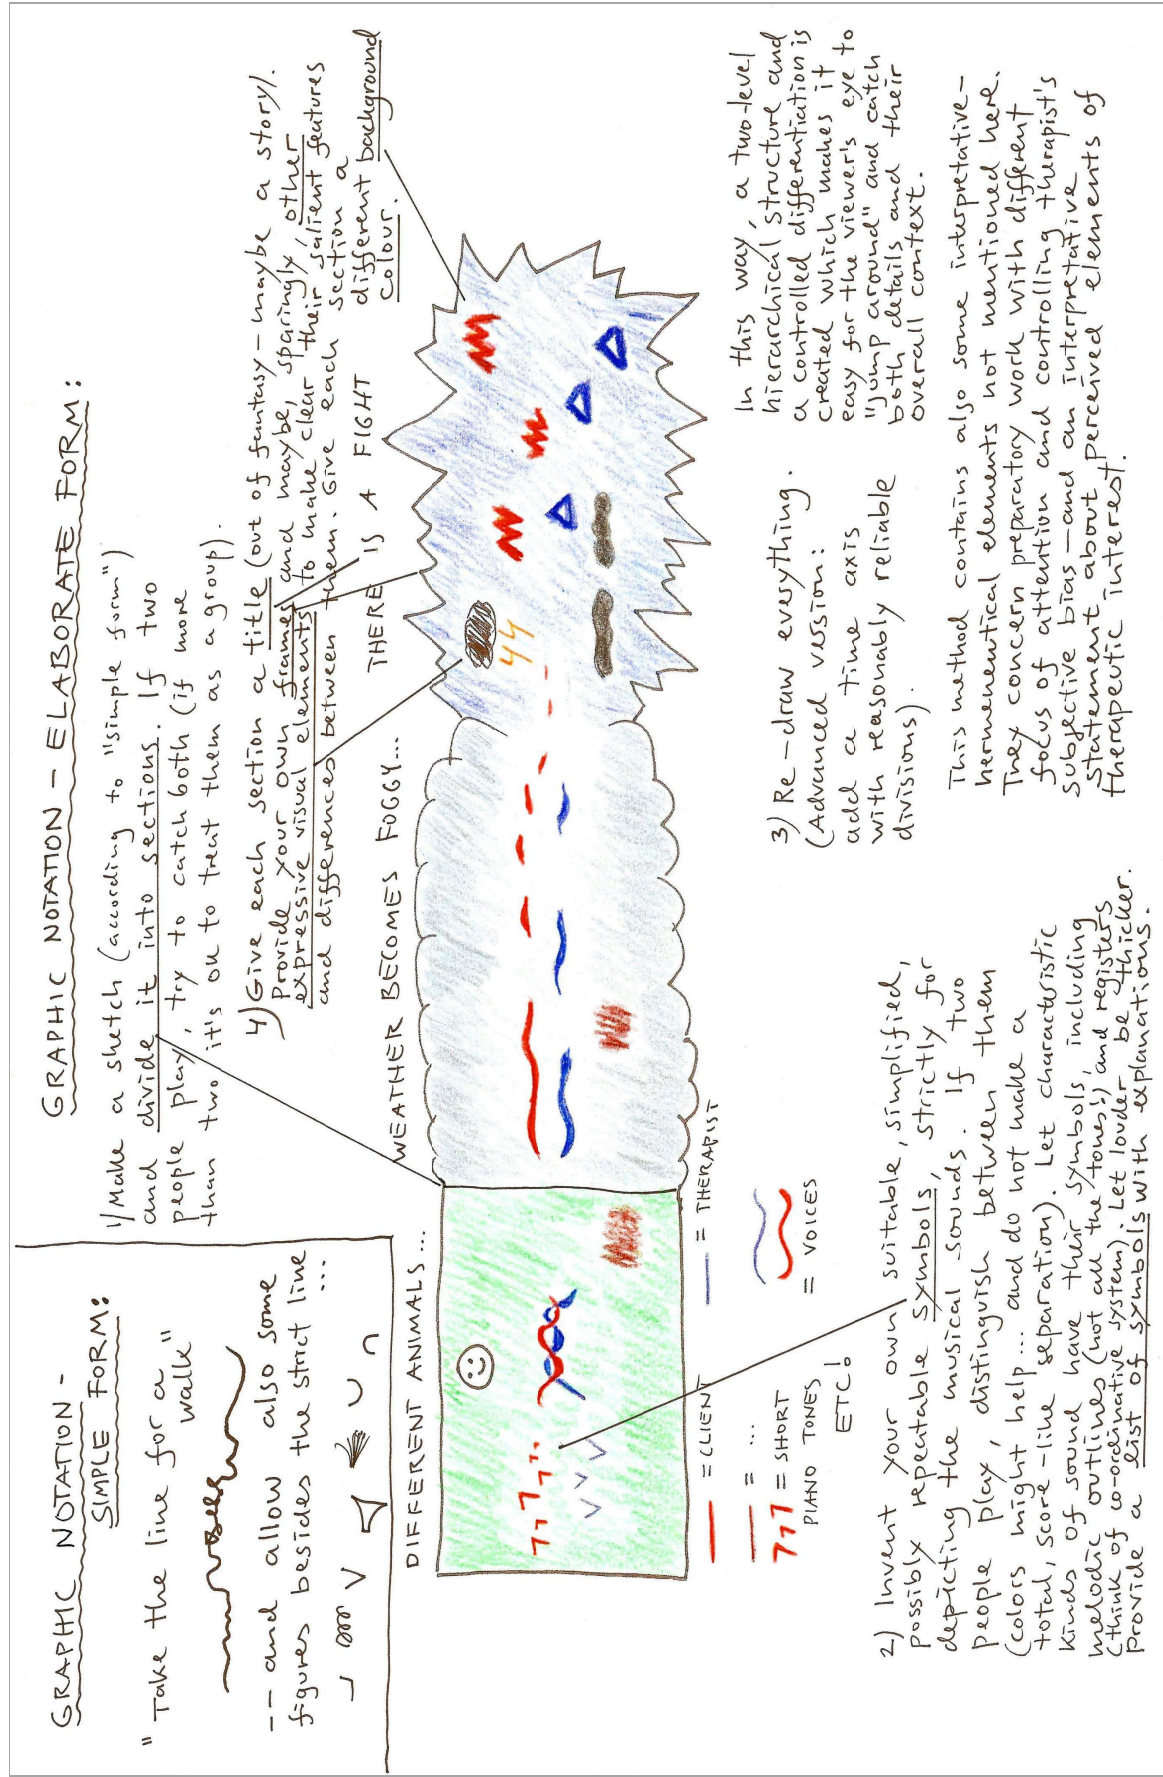 GRAPHIC NOTATION -
SIMPLE FORM:
"Take the line for a
walk"
-- and allow also some
figures besides the strict line
...
GRAPHIC NOTATION - ELABORATE FORM:
1) Make a sketch (according to "simple form")
and divide it into sections. If two
people play, try to catch both (if more
than two it's ok to treat them as a group).
4) Give each section a title (out of fantasy - maybe a story).
Provide your own frames and maybe, sparingly, other
expressive visual elements to make clear their salient features
and differences between them. Give each section a
different background
colour.
DIFFERENT ANIMALS...
WEATHER BECOMES FOGGY...
THERE IS A FIGHT
= CLIENT
= THERAPIST
= ...
= SHORT
PIANO TONES
= VOICES
ETC!
2) Invent your own suitable, simplified,
possibly repeatable symbols, strictly for
depicting the musical sounds. If two
people play, distinguish between them
(colors might help... and do not make a
total, score-like separation). Let characteristic
kinds of sound have their symbols, including
melodic outlines (not all the tones!) and registers
(think of co-ordinative system). Let louder be thicker.
Provide a list of symbols with explanations.
3) Re-draw everything.
(Advanced version:
add a time axis
with reasonably reliable
divisions).
In this way, a two-level
hierarchical structure and
a controlled differentiation is
created which makes it
easy for the viewer's eye to
"jump around" and catch
both details and their
overall context.
This method contains also some interpretative-
hermeneutical elements not mentioned here.
They concern preparatory work with different
focus of attention and controlling therapist's
subjective bias - and an interpretative
statement about perceived elements of
therapeutic interest.